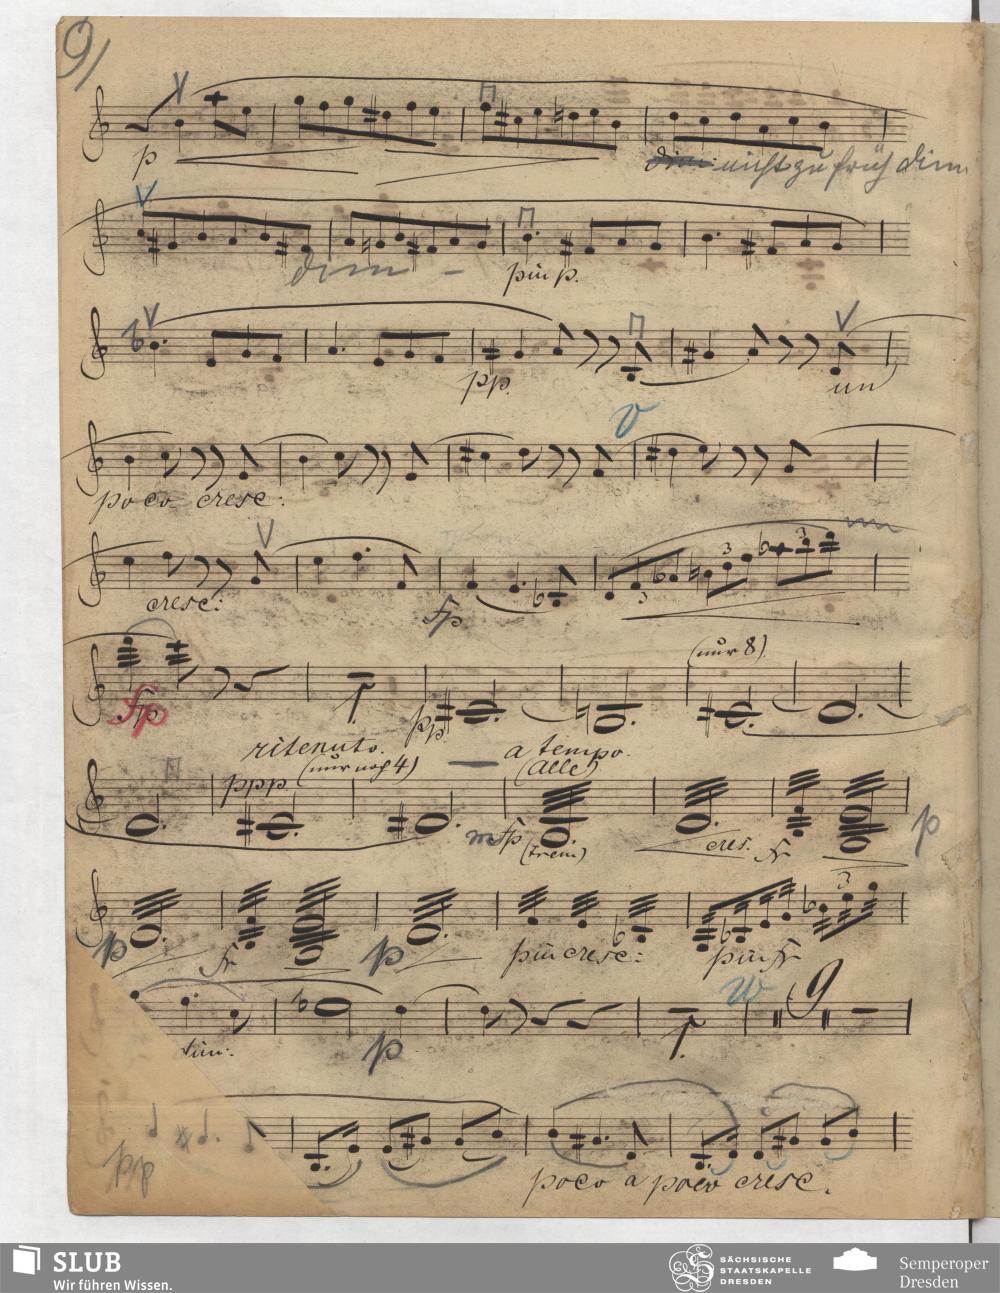 9
p dim: nicht zu früh dim.
dim - più p.
pp. un
poco cresc:
cresc: fp
3 3 3
(nur 8)
fp pp.
ritenuto. a tempo.
ppp. (nur noch 4) (alle)
mfp (trem:) cres. fr p
3
p fr p più cresc: più fr
9
dim: p
pp poco a poco cresc.
SLUB
Wir führen Wissen.
SÄCHSISCHE
STAATSKAPELLE
DRESDEN
Semperoper
Dresden